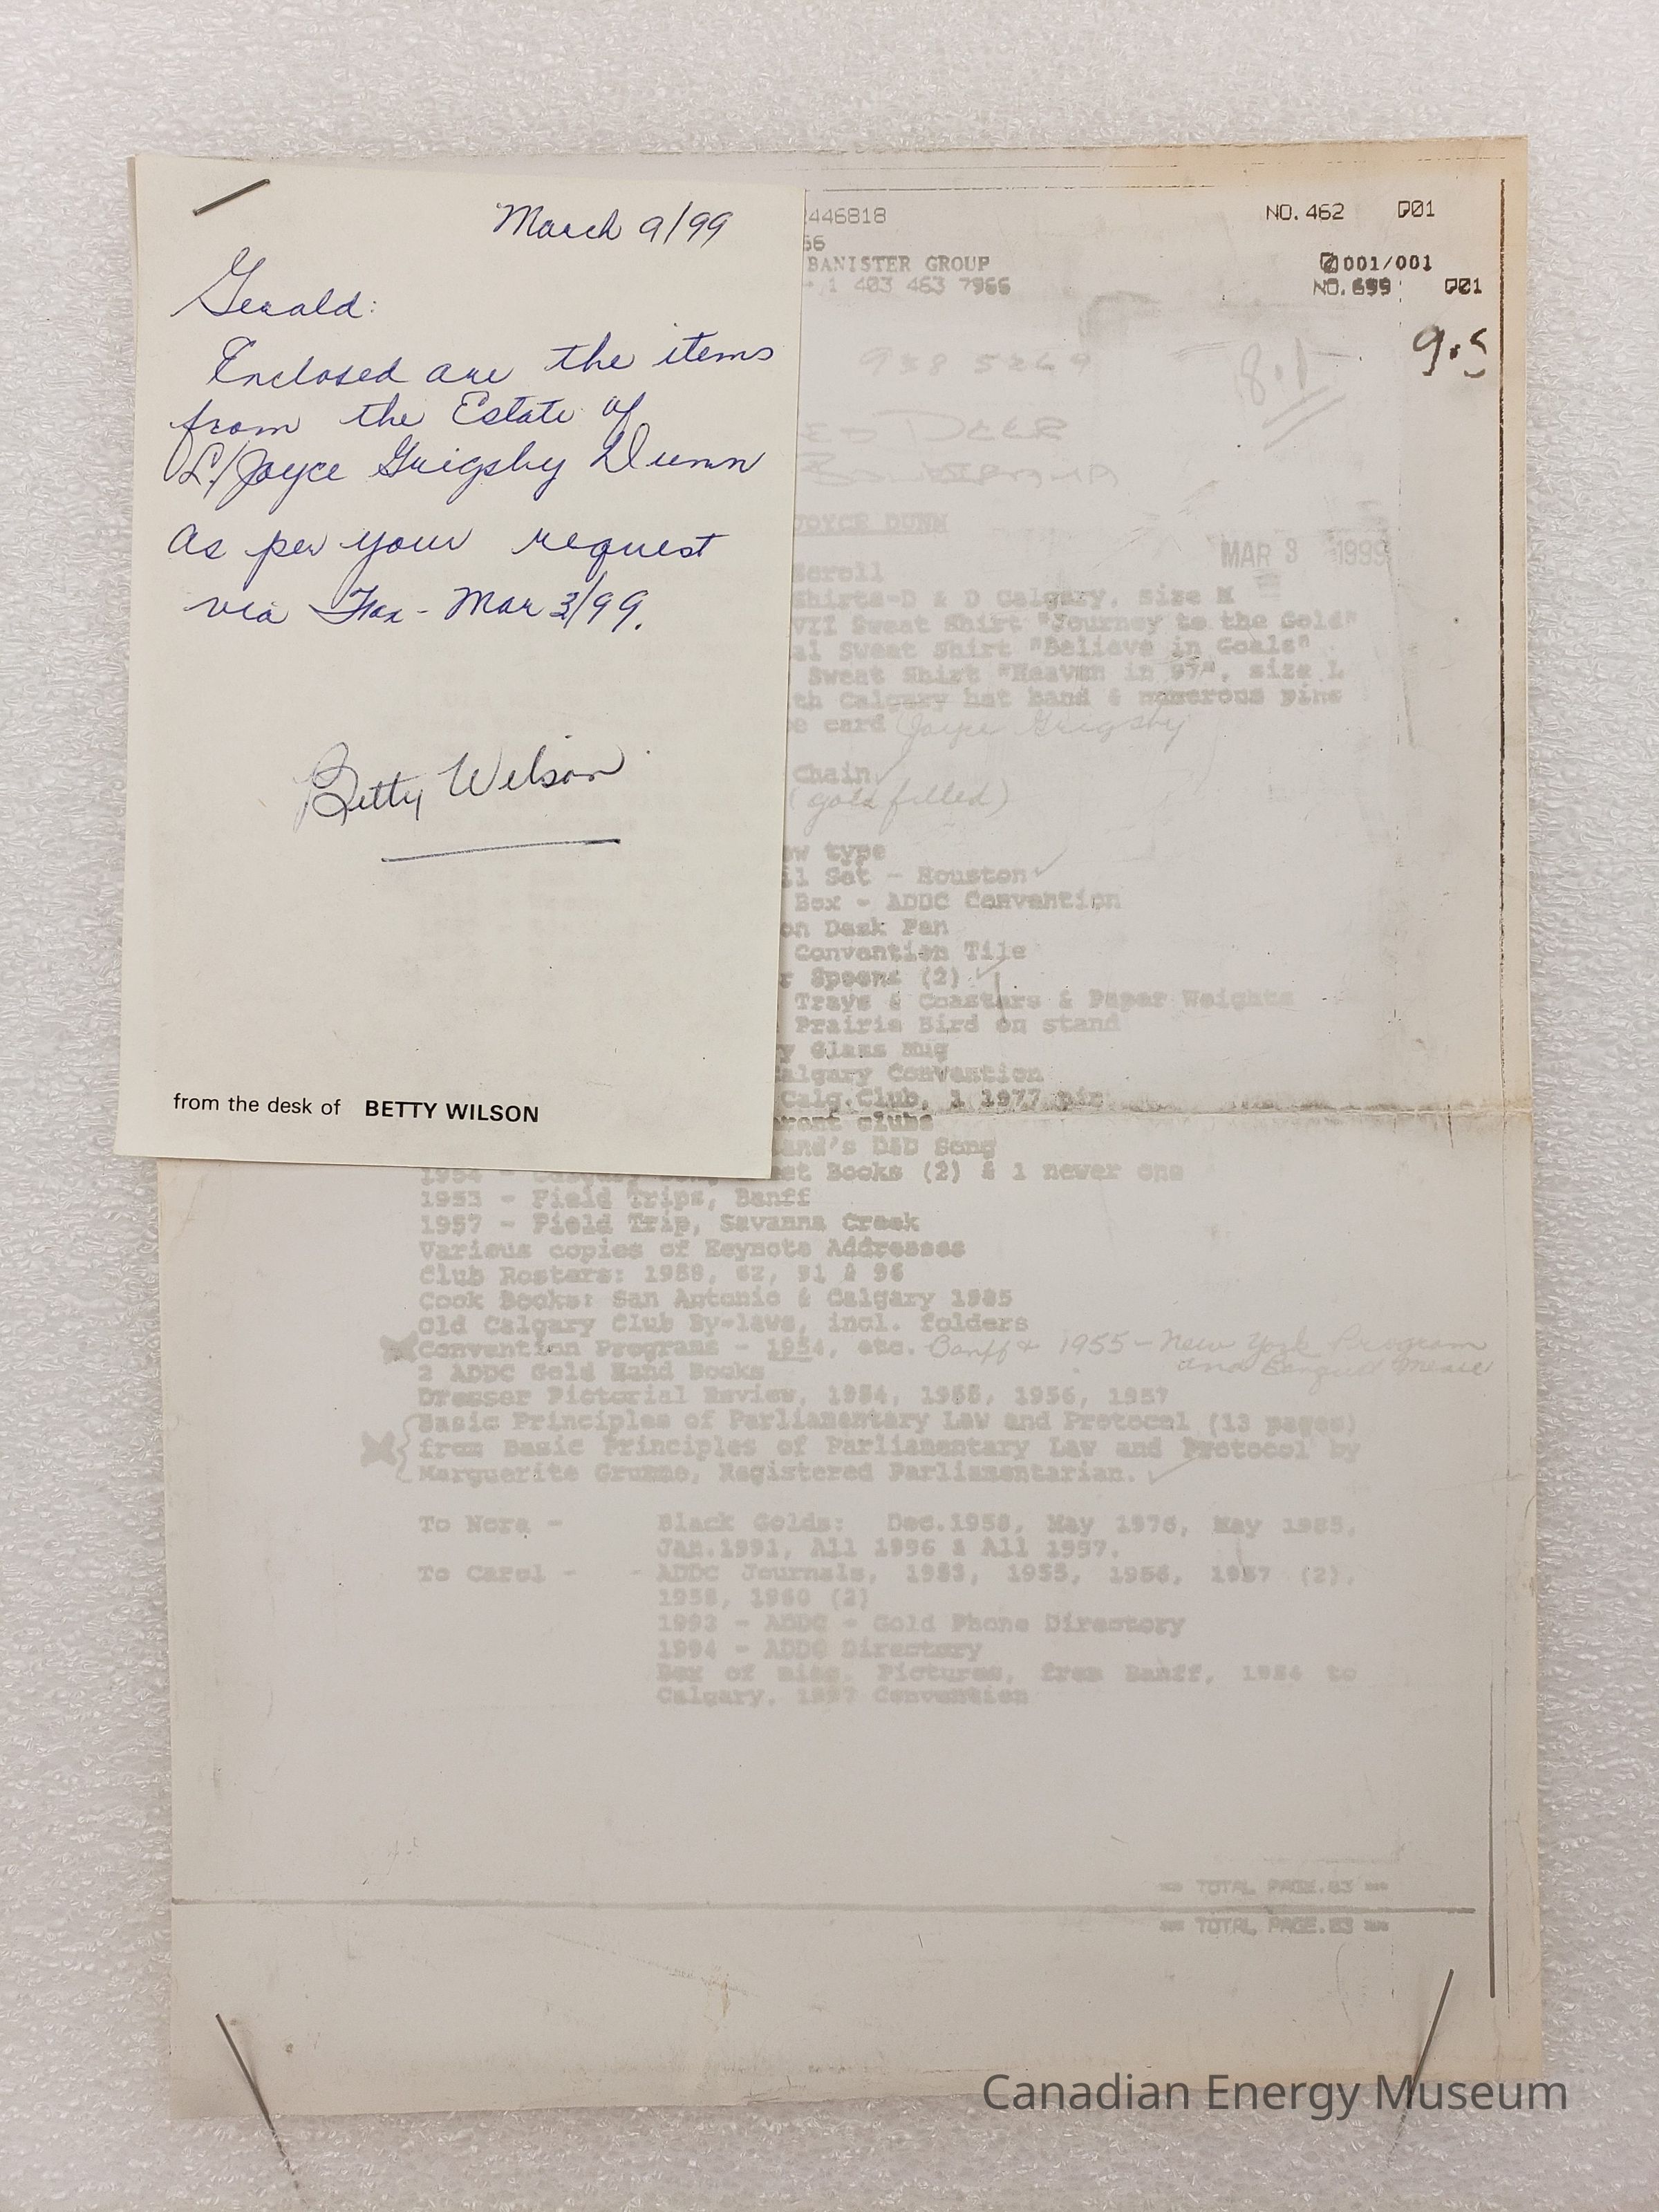 March 9/99
Gerald:
Enclosed are the items
from the Estate of
L/Joyce Grigsby Dunn
as per your request
via Fax - Mar 3/99.
Betty Wilson
from the desk of BETTY WILSON
446818 NO. 462 P01
66
BANISTER GROUP 001/001
1 403 463 7966 NO. 699 P01
9.5
8.1
JOYCE DUNN
MAR 3 1999
Scroll
Shirts-D & D Calgary, size M
VII Sweat Shirt "Journey to the Gold"
al Sweat Shirt "Believe in Goals"
Sweat Shirt "Heaven in 97", size L
th Calgary hat band & numerous pins
e card Joyce Grigsby
Chain
(gold filled)
ew type
il Set - Houston
Box - ADDC Convention
on Desk Pen
Convention Tile
r Spoons (2)
Trays & Coasters & Paper Weights
Prairie Bird on stand
y Glass Mug
algary Convention
Calg.Club, 1 1977 pin
erent clubs
and's D&D Song
1954 - et Books (2) & 1 newer one
1953 - Field Trips, Banff
1957 - Field Trip, Savanna Creek
Various copies of Keynote Addresses
Club Rosters: 1958, 62, 91 & 96
Cook Books: San Antonio & Calgary 1985
Old Calgary Club By-laws, incl. folders
Convention Programs - 1954, etc. Banff & 1955 - New York Program
and Banquet Menu
2 ADDC Gold Hand Books
Dresser Pictorial Review, 1954, 1955, 1956, 1957
Basic Principles of Parliamentary Law and Protocol (13 pages)
from Basic Principles of Parliamentary Law and Protocol by
Marguerite Grumme, Registered Parliamentarian.
To Nora - Black Golds: Dec.1958, May 1976, May 1985,
Jan.1991, All 1996 & All 1997.
To Carol - - ADDC Journals, 1953, 1955, 1956, 1957 (2),
1958, 1960 (2)
1993 - ADDC - Gold Phone Directory
1994 - ADDC Directory
Box of misc. Pictures, from Banff, 1954 to
Calgary, 1997 Convention
** TOTAL PAGE.03 **
** TOTAL PAGE.03 **
Canadian Energy Museum